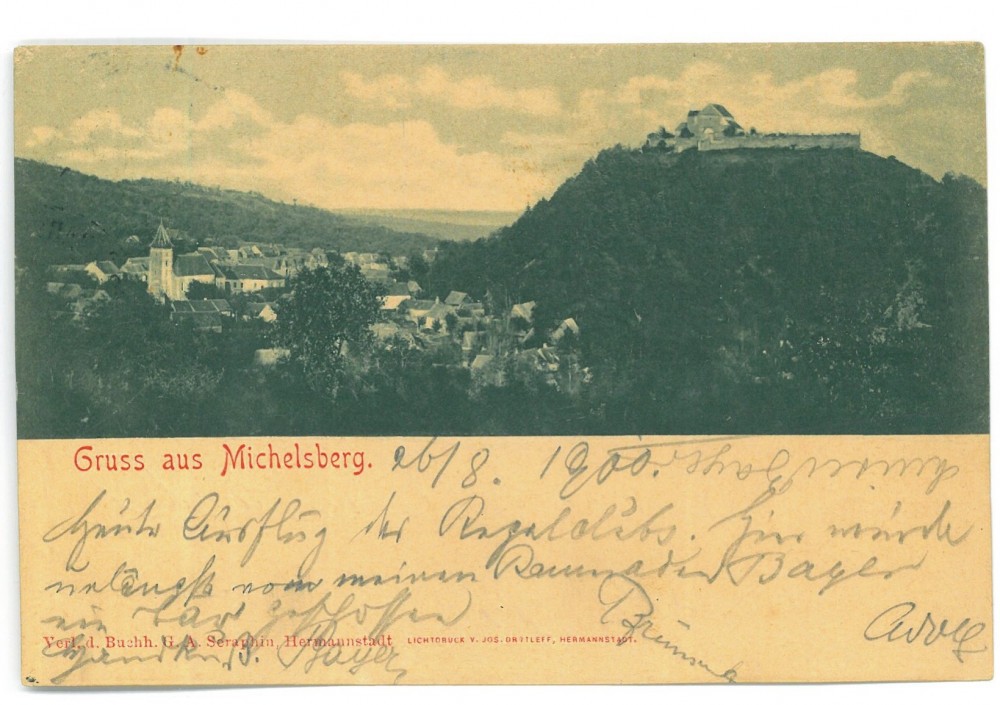 Gruss aus Michelsberg. 26/8. 1900.
Heute Ausflug des Kegelclubs. Hier wurde
unlängst von meinen Kameraden Bayer
ein Bär geschossen
Adolf
Verl. d. Buchh. G. A. Seraphin, Hermannstadt LICHTDRUCK V. JOS. DROTLEFF, HERMANNSTADT.
J. Bayer